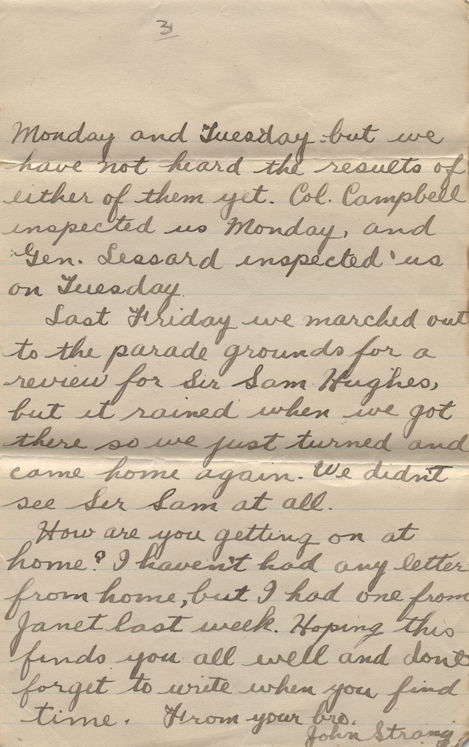 3
Monday and Tuesday but we
have not heard the results of
either of them yet. Col. Campbell
inspected us Monday, and
Gen. Lessard inspected us
on Tuesday.
Last Friday we marched out
to the parade grounds for a
review for Sir Sam Hughes,
but it rained when we got
there so we just turned and
came home again. We didn't
see Sir Sam at all.
How are you getting on at
home? I haven't had any letter
from home, but I had one from
Janet last week. Hoping this
finds you all well and dont
forget to write when you find
time. From your bro.
John Strang